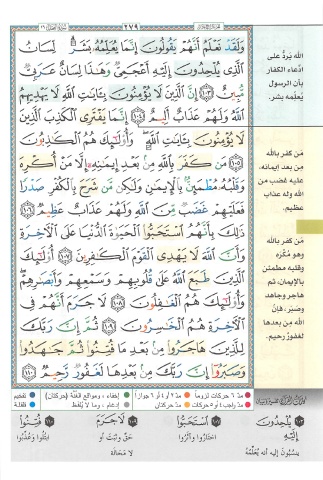 سُورَةُ النَّحْلِ ١٦
٢٧٩
وَلَقَدْ نَعْلَمُ أَنَّهُمْ يَقُولُونَ إِنَّمَا يُعَلِّمُهُۥ بَشَرٌ ۗ لِّسَانُ
ٱلَّذِى يُلْحِدُونَ إِلَيْهِ أَعْجَمِىٌّ وَهَٰذَا لِسَانٌ عَرَبِىٌّ
مُّبِينٌ ١٠٣ إِنَّ ٱلَّذِينَ لَا يُؤْمِنُونَ بِـَٔايَٰتِ ٱللَّهِ لَا يَهْدِيهِمُ
ٱللَّهُ وَلَهُمْ عَذَابٌ أَلِيمٌ ١٠٤ إِنَّمَا يَفْتَرِى ٱلْكَذِبَ ٱلَّذِينَ
لَا يُؤْمِنُونَ بِـَٔايَٰتِ ٱللَّهِ ۖ وَأُو۟لَٰٓئِكَ هُمُ ٱلْكَٰذِبُونَ
١٠٥ مَن كَفَرَ بِٱللَّهِ مِنۢ بَعْدِ إِيمَٰنِهِۦٓ إِلَّا مَنْ أُكْرِهَ
وَقَلْبُهُۥ مُطْمَئِنٌّۢ بِٱلْإِيمَٰنِ وَلَٰكِن مَّن شَرَحَ بِٱلْكُفْرِ صَدْرًا
فَعَلَيْهِمْ غَضَبٌ مِّنَ ٱللَّهِ وَلَهُمْ عَذَابٌ عَظِيمٌ ١٠٦
ذَٰلِكَ بِأَنَّهُمُ ٱسْتَحَبُّوا۟ ٱلْحَيَوٰةَ ٱلدُّنْيَا عَلَى ٱلْءَاخِرَةِ
وَأَنَّ ٱللَّهَ لَا يَهْدِى ٱلْقَوْمَ ٱلْكَٰفِرِينَ ١٠٧ أُو۟لَٰٓئِكَ
ٱلَّذِينَ طَبَعَ ٱللَّهُ عَلَىٰ قُلُوبِهِمْ وَسَمْعِهِمْ وَأَبْصَٰرِهِمْ ۖ
وَأُو۟لَٰٓئِكَ هُمُ ٱلْغَٰفِلُونَ ١٠٨ لَا جَرَمَ أَنَّهُمْ فِى
ٱلْءَاخِرَةِ هُمُ ٱلْخَٰسِرُونَ ١٠٩ ثُمَّ إِنَّ رَبَّكَ
لِلَّذِينَ هَاجَرُوا۟ مِنۢ بَعْدِ مَا فُتِنُوا۟ ثُمَّ جَٰهَدُوا۟
وَصَبَرُوٓا۟ إِنَّ رَبَّكَ مِنۢ بَعْدِهَا لَغَفُورٌ رَّحِيمٌ ١١٠
الله يَردُّ على
ادّعاء الكفار
بأن الرسول
يُعلّمه بشر.
مَن كفر بالله
من بعد إيمانه،
عليه غضب من
الله وله عذاب
عظيم.
مَن كفر بالله
وهو مُكْره
وقلبه مطمئن
بالإيمان، ثم
هاجر وجاهد
وصبَر، فإنّ
الله من بعدها
لغفورٌ رحيم.
مدّ ٦ حركات لزوماً مدّ ٢ أو ٤ أو ٦ جوازاً إخفاء، ومواقع الغُنَّة (حركتان) تفخيم
مدّ واجب ٤ أو ٥ حركات مدّ حركتان إدغام، وما لا يُلفَظ قلقلة
١٠٣ يُلْحِدُونَ إِلَيْهِ
ينسبُونَ إليه أنَّه يُعَلِّمُهُ
١٠٧ اسْتَحَبُّوا
اختارُوا وآثرُوا
١٠٩ لَا جَرَمَ
حقّ وثبَتَ أو لا محَالة
١١٠ فُتِنُوا
ابتُلُوا وعُذِّبُوا